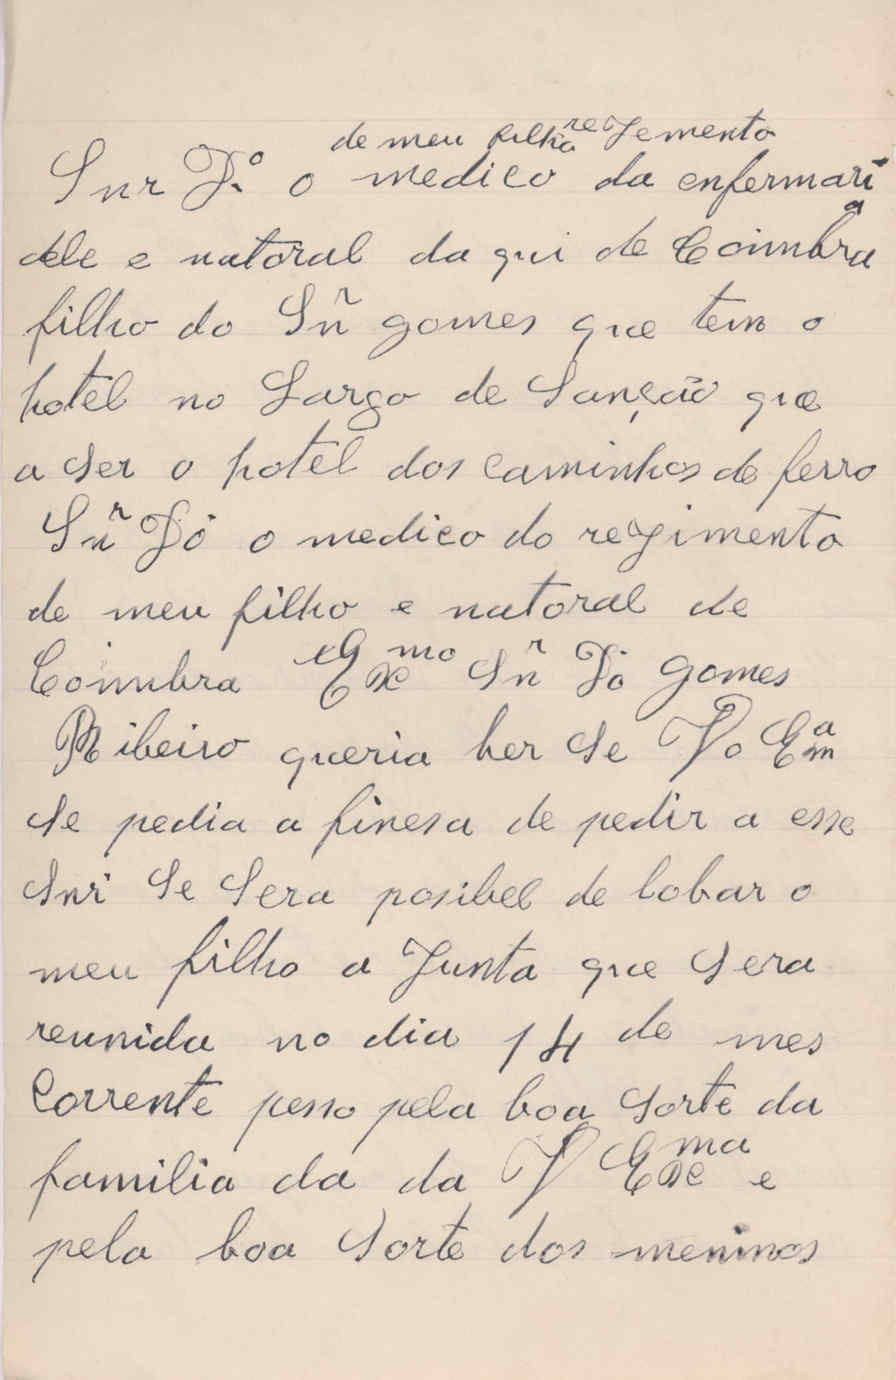 de meu filho reJemento
Snr Dº o medico da enfermaria
dele e natoral da qui de Coimbra
filho do Snr gomes que tem o
hotel no Largo de Sanção que
a ser o hotel dos caminhos de ferro
Snr Dó o medico do regimento
de meu filho e natoral de
Coimbra Exmo Snr Dó gomes
Ribeiro queria ber se Vo Ema
se pedia a finesa de pedir a esse
Snr se sera posibel de lobar o
meu filho a Junta que sera
reunida no dia 14 de mes
Corrente pesso pela boa sorte da
familia da da V Exma e
pela boa sorte dos meninos